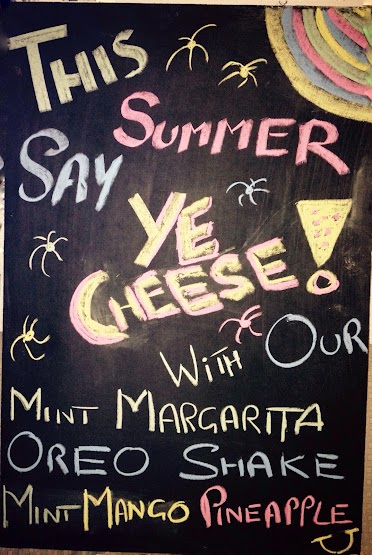 THIS
SUMMER
SAY
YE
CHEESE!
WITH OUR
MINT MARGARITA
OREO SHAKE
MINT MANGO PINEAPPLE